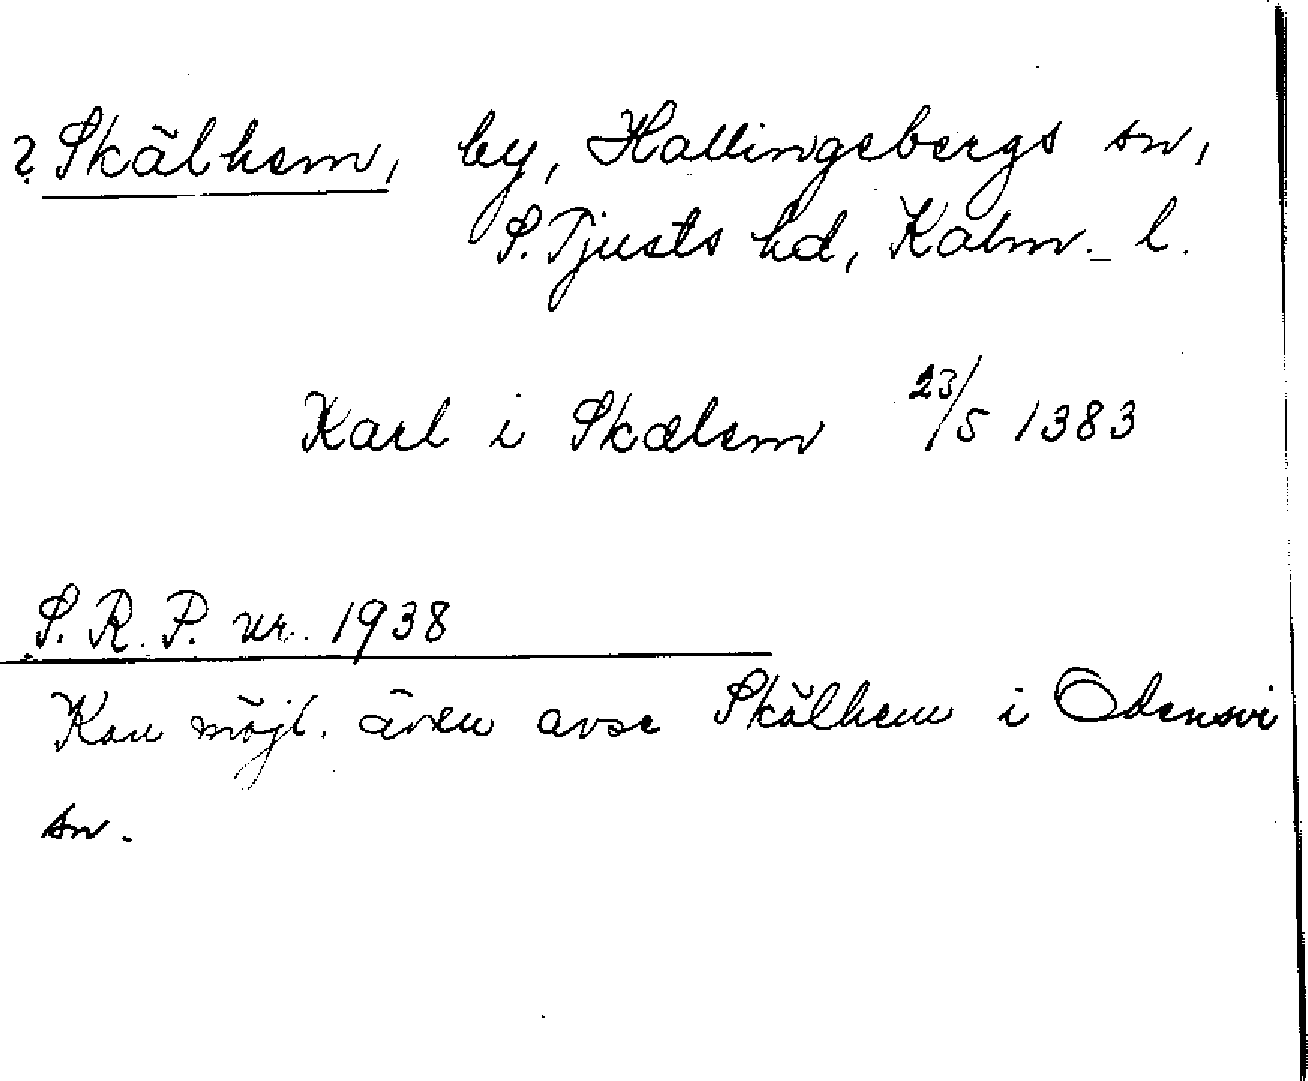 ? Skälhem, by, Hallingebergs sn,
S. Tjusts hd, Kalm. l.
Karl i Skælem 23/5 1383
S. R. P. nr. 1938
Kan möjl. även avse Skälhem i Odensvi
sn.